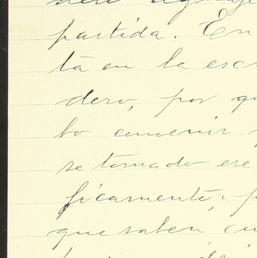 partida. En
ta en la esc
dero, por qu
bo convenir
se tornado ese
ficamente, p
que saben, cu